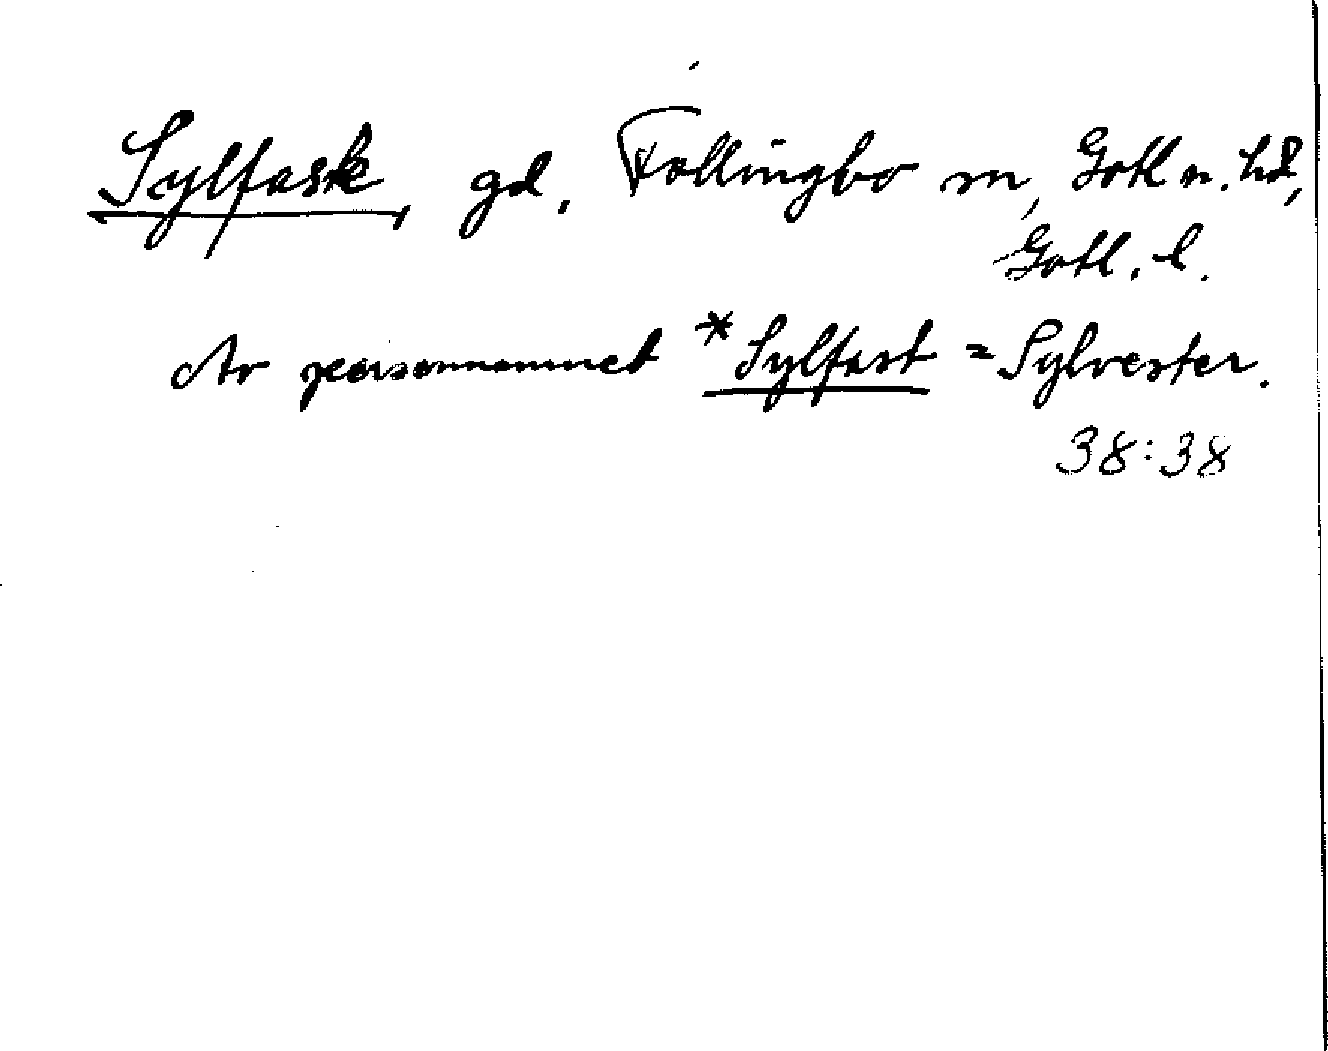 Sylfaste, gd, Follingbo sn, Gotl n. hd,
Gotl. l.
Av personnamnet *Sylfast = Sylvester.
38:38